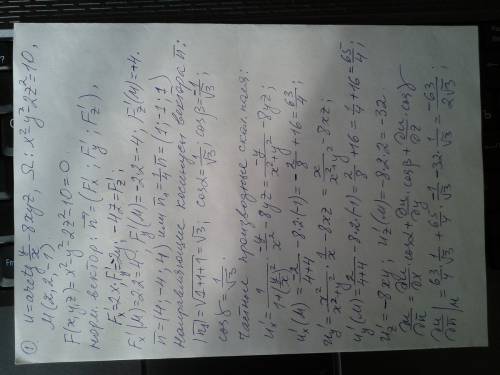 ① u = arctg y/x - 8xyz, Ω: x²-y²-2z²=10,
M(2,2,-1)
F(x,y,z)=x²-y²-2z²-10=0
норм. вектор: n̄=(Fx'; Fy'; Fz').
Fx=2x; Fy'=-2y; -4z=Fz';
Fx(M)=2·2=4; Fy'(M)=-2·2=-4; Fz'(M)=+4.
n̄=(4;-4;4) или n̄₁=1/4 n̄=(1;-1;1)
Направляющие косинусы вектора n̄:
|n̄₁|=√1+1+1=√3; cosα=1/√3; cosβ=-1/√3;
cosγ=1/√3.
Частные производные скал. поля:
u'x=1/(1+(y/x)²)·(-y/x²)-8yz=-y/(x²+y²)-8yz;
u'x(M)=-2/(4+4)-8·2(-1)=-2/8+16=63/4;
u'y=x²/(x²+y²)·1/x-8xz=x/(x²+y²)-8xz;
u'y(M)=2/(4+4)-8·2(-1)=2/8+16=1/4+16=65/4;
u'z=-8xy; u'z(M)=-8·2·2=-32.
∂u/∂n̄=∂u/∂x·cosα+∂u/∂y·cosβ+∂u/∂z·cosγ
∂u/∂n̄|M=63/4·1/√3+65/4·-1/√3-32·1/√3=-63/2√3;